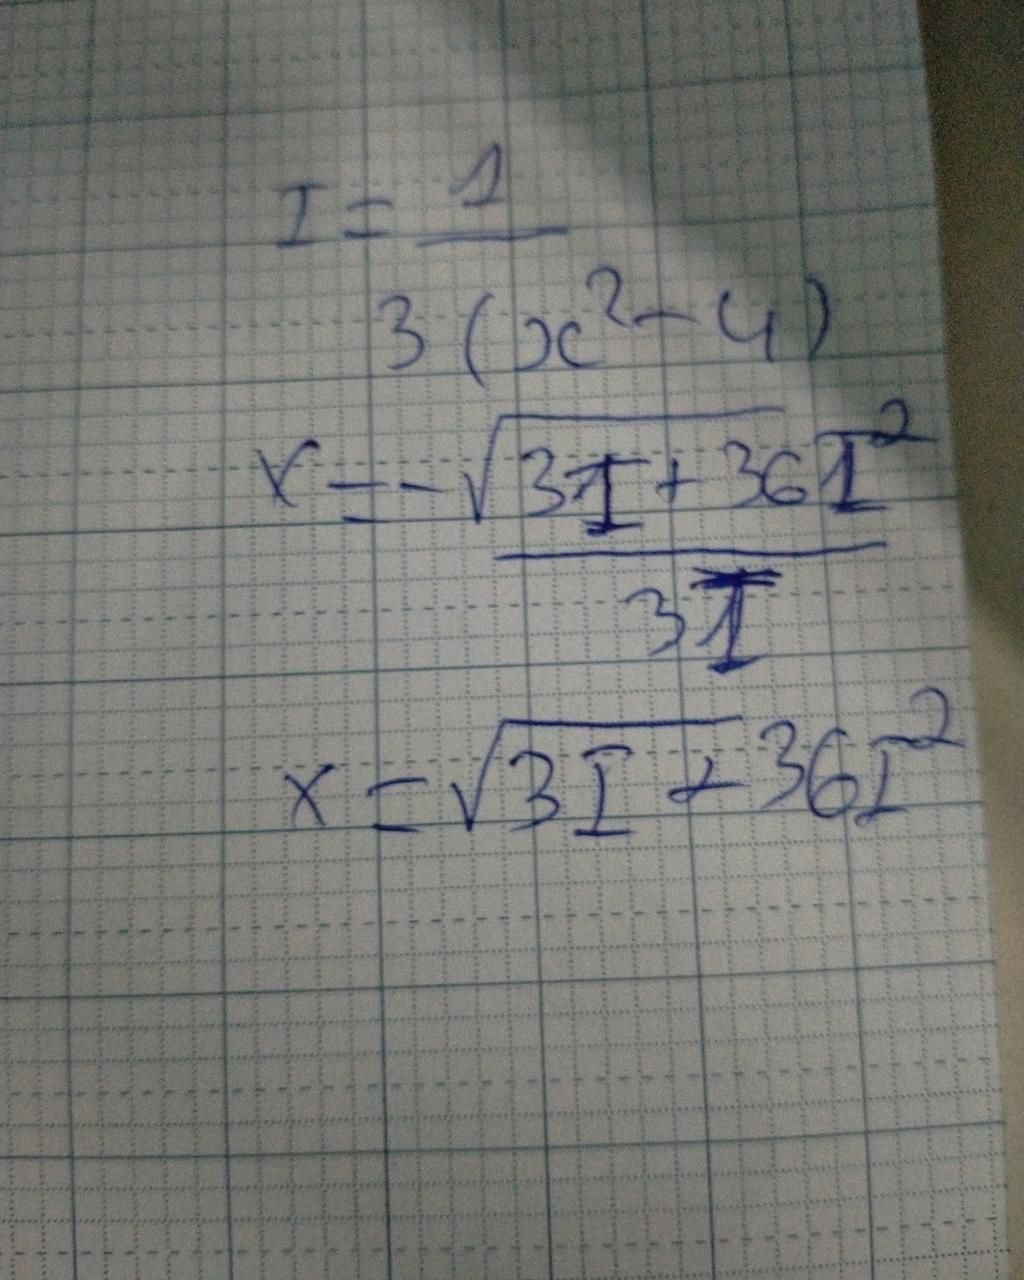 I = 1
3 (x² - 4)
x = - √3I + 36I²
3I
x = √3I + 36I²